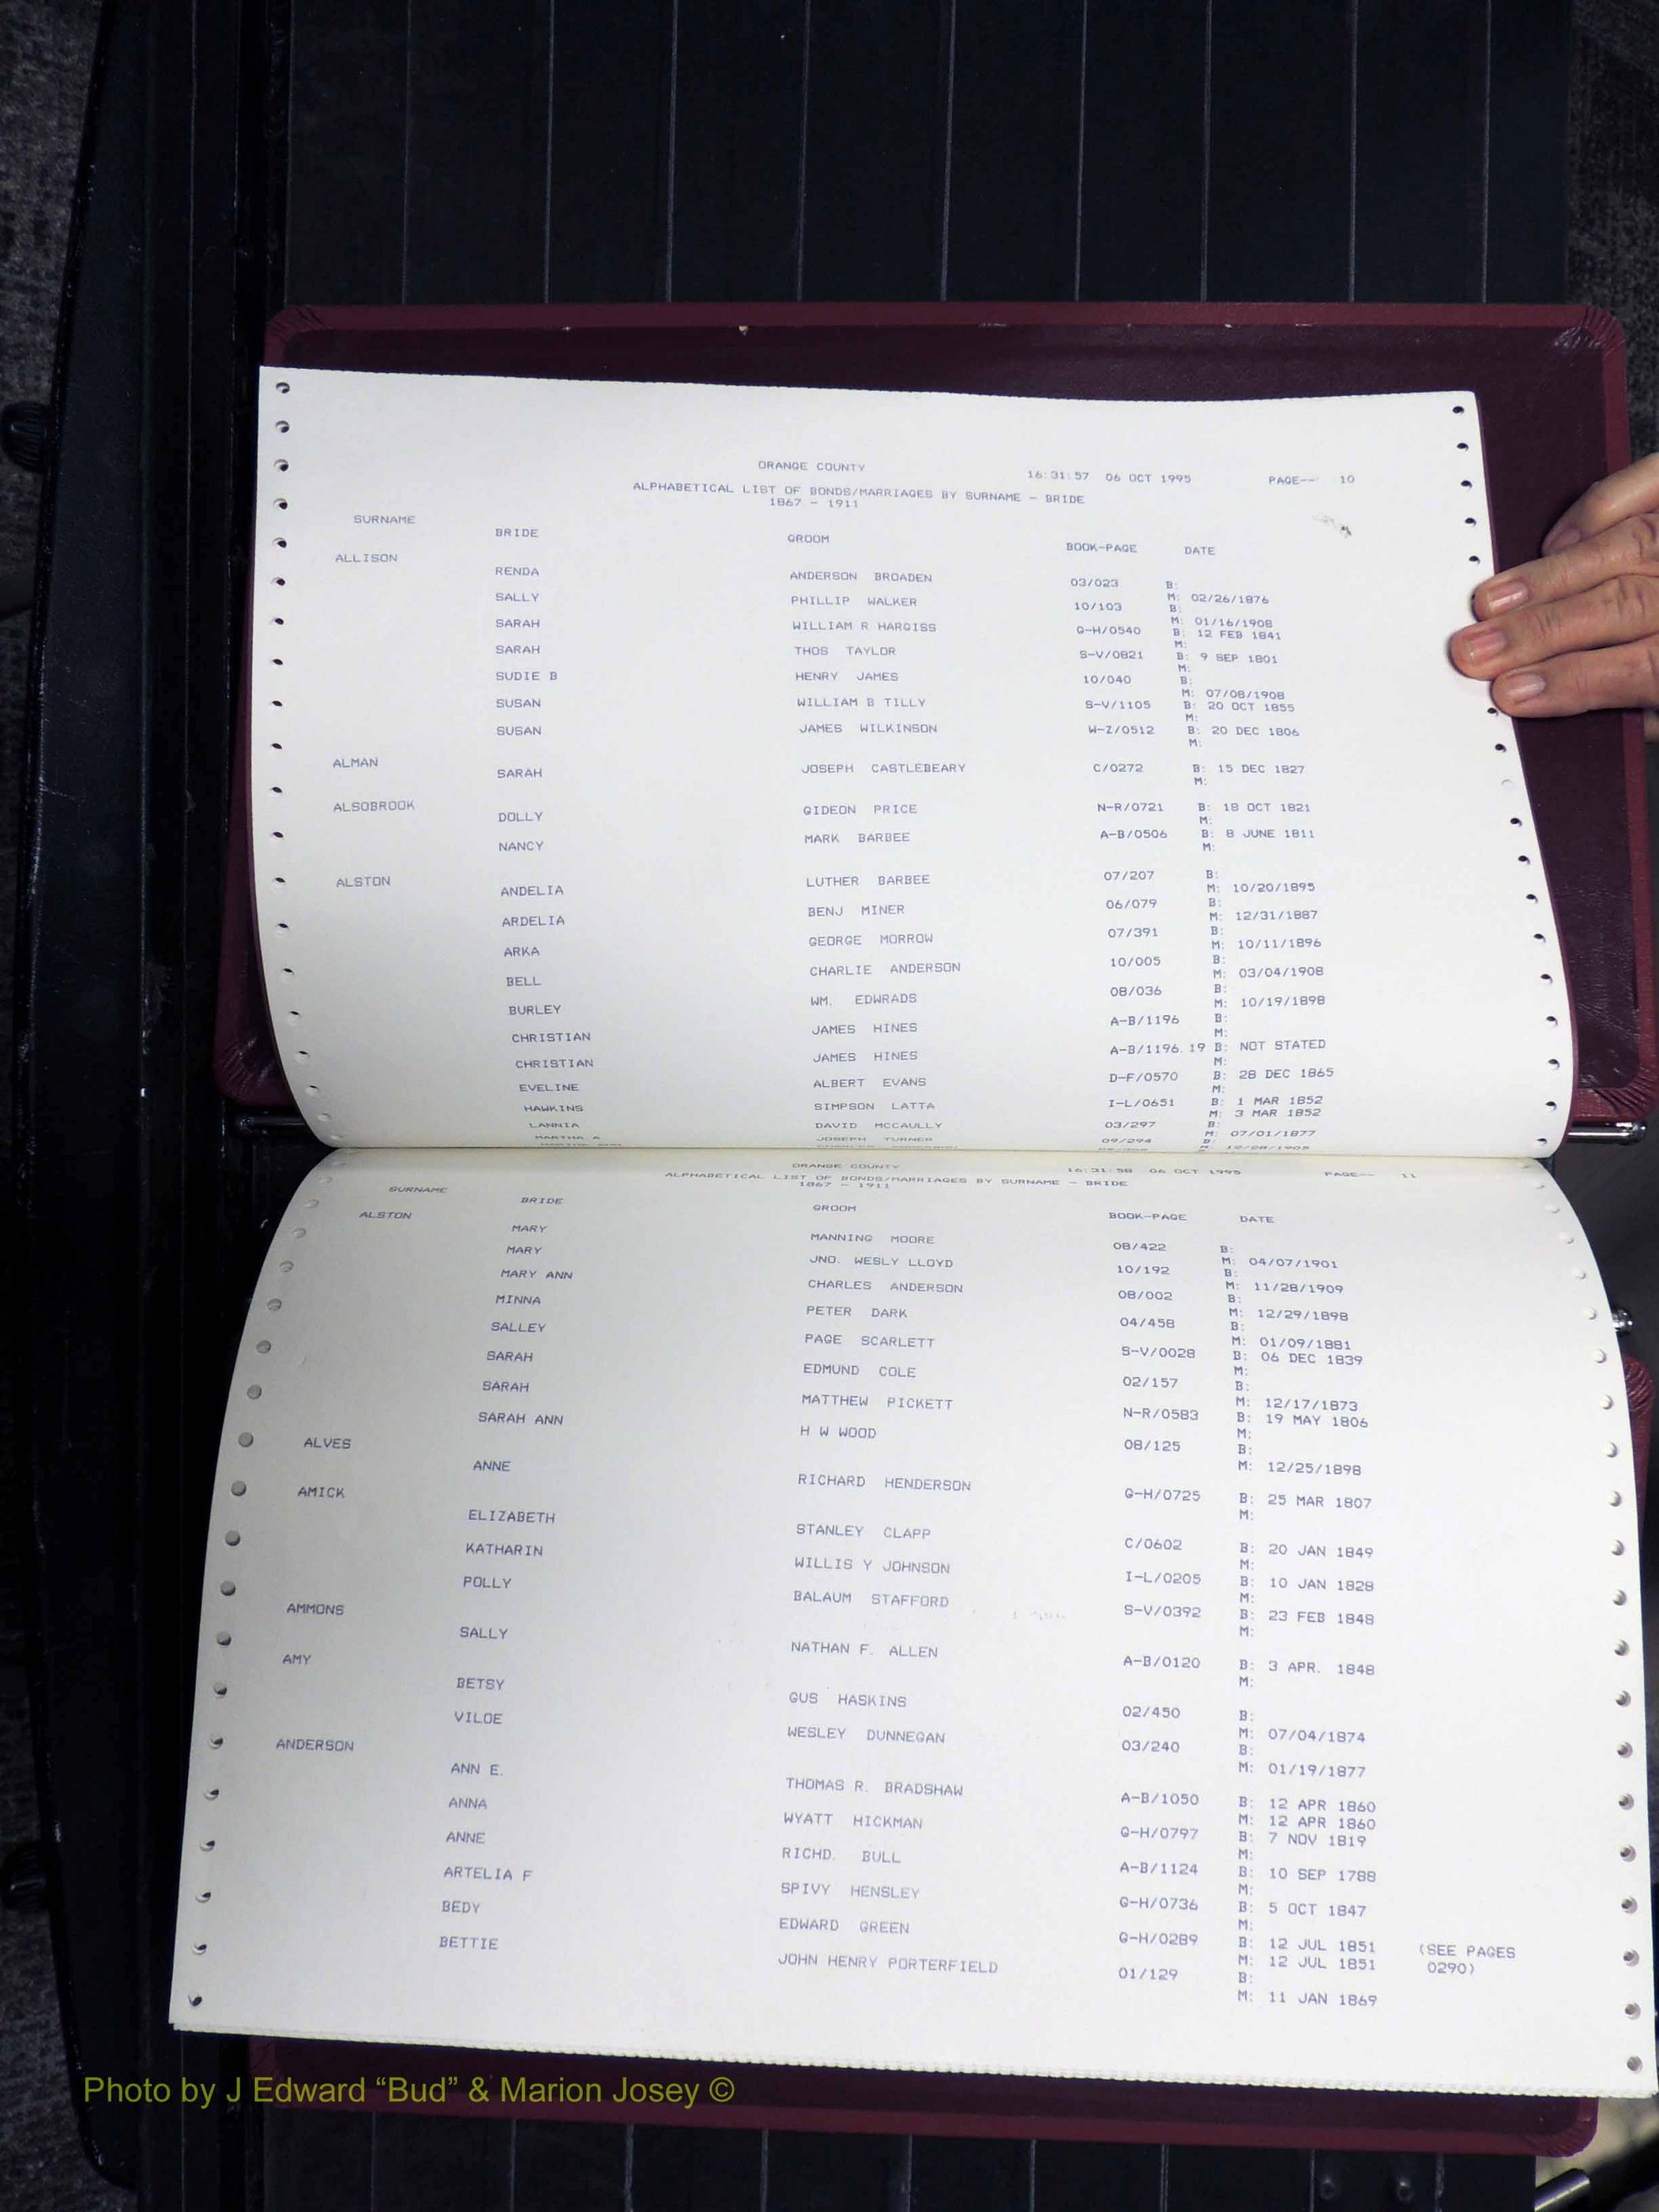 ORANGE COUNTY 16:31:57 06 OCT 1995 PAGE-- 10
ALPHABETICAL LIST OF BONDS/MARRIAGES BY SURNAME - BRIDE
1867 - 1911
SURNAME BRIDE GROOM BOOK-PAGE DATE
ALLISON
RENDA ANDERSON BROADEN 03/023 B:
M: 02/26/1876
SALLY PHILLIP WALKER 10/103 B:
M: 01/16/1908
SARAH WILLIAM R HARGISS G-H/0540 B: 12 FEB 1841
M:
SARAH THOS TAYLOR S-V/0821 B: 9 SEP 1801
M:
SUDIE B HENRY JAMES 10/040 B:
M: 07/08/1908
SUSAN WILLIAM B TILLY S-V/1105 B: 20 OCT 1855
M:
SUSAN JAMES WILKINSON W-Z/0512 B: 20 DEC 1806
M:
ALMAN
SARAH JOSEPH CASTLEBEARY C/0272 B: 15 DEC 1827
M:
ALSOBROOK
DOLLY GIDEON PRICE N-R/0721 B: 18 OCT 1821
M:
NANCY MARK BARBEE A-B/0506 B: 8 JUNE 1811
M:
ALSTON
ANDELIA LUTHER BARBEE 07/207 B:
M: 10/20/1895
ARDELIA BENJ MINER 06/079 B:
M: 12/31/1887
ARKA GEORGE MORROW 07/391 B:
M: 10/11/1896
BELL CHARLIE ANDERSON 10/005 B:
M: 03/04/1908
BURLEY WM. EDWRADS 08/036 B:
M: 10/19/1898
CHRISTIAN JAMES HINES A-B/1196 B:
M:
CHRISTIAN JAMES HINES A-B/1196.19 B: NOT STATED
M:
EVELINE ALBERT EVANS D-F/0570 B: 28 DEC 1865
M:
HAWKINS SIMPSON LATTA I-L/0651 B: 1 MAR 1852
M: 3 MAR 1852
LANNIA DAVID MCCAULLY 03/297 B:
M: 07/01/1877
MARTHA A JOSEPH TURNER 09/294 B:
M: 12/28/1905
ORANGE COUNTY 16:31:58 06 OCT 1995 PAGE-- 11
ALPHABETICAL LIST OF BONDS/MARRIAGES BY SURNAME - BRIDE
1867 - 1911
SURNAME BRIDE GROOM BOOK-PAGE DATE
ALSTON
MARY MANNING MOORE 08/422 B:
M: 04/07/1901
MARY JNO. WESLY LLOYD 10/192 B:
M: 11/28/1909
MARY ANN CHARLES ANDERSON 08/002 B:
M: 12/29/1898
MINNA PETER DARK 04/458 B:
M: 01/09/1881
SALLEY PAGE SCARLETT S-V/0028 B: 06 DEC 1839
M:
SARAH EDMUND COLE 02/157 B:
M: 12/17/1873
SARAH MATTHEW PICKETT N-R/0583 B: 19 MAY 1806
M:
SARAH ANN H W WOOD 08/125 B:
M: 12/25/1898
ALVES
ANNE RICHARD HENDERSON G-H/0725 B: 25 MAR 1807
M:
AMICK
ELIZABETH STANLEY CLAPP C/0602 B: 20 JAN 1849
M:
KATHARIN WILLIS Y JOHNSON I-L/0205 B: 10 JAN 1828
M:
POLLY BALAUM STAFFORD S-V/0392 B: 23 FEB 1848
M:
AMMONS
SALLY NATHAN F. ALLEN A-B/0120 B: 3 APR. 1848
M:
AMY
BETSY GUS HASKINS 02/450 B:
M: 07/04/1874
VILOE WESLEY DUNNEGAN 03/240 B:
M: 01/19/1877
ANDERSON
ANN E. THOMAS R. BRADSHAW A-B/1050 B: 12 APR 1860
M: 12 APR 1860
ANNA WYATT HICKMAN G-H/0797 B: 7 NOV 1819
M:
ANNE RICHD. BULL A-B/1124 B: 10 SEP 1788
M:
ARTELIA F SPIVY HENSLEY G-H/0736 B: 5 OCT 1847
M:
BEDY EDWARD GREEN G-H/0289 B: 12 JUL 1851 (SEE PAGES
M: 12 JUL 1851 0290)
BETTIE JOHN HENRY PORTERFIELD 01/129 B:
M: 11 JAN 1869
Photo by J Edward “Bud” & Marion Josey ©